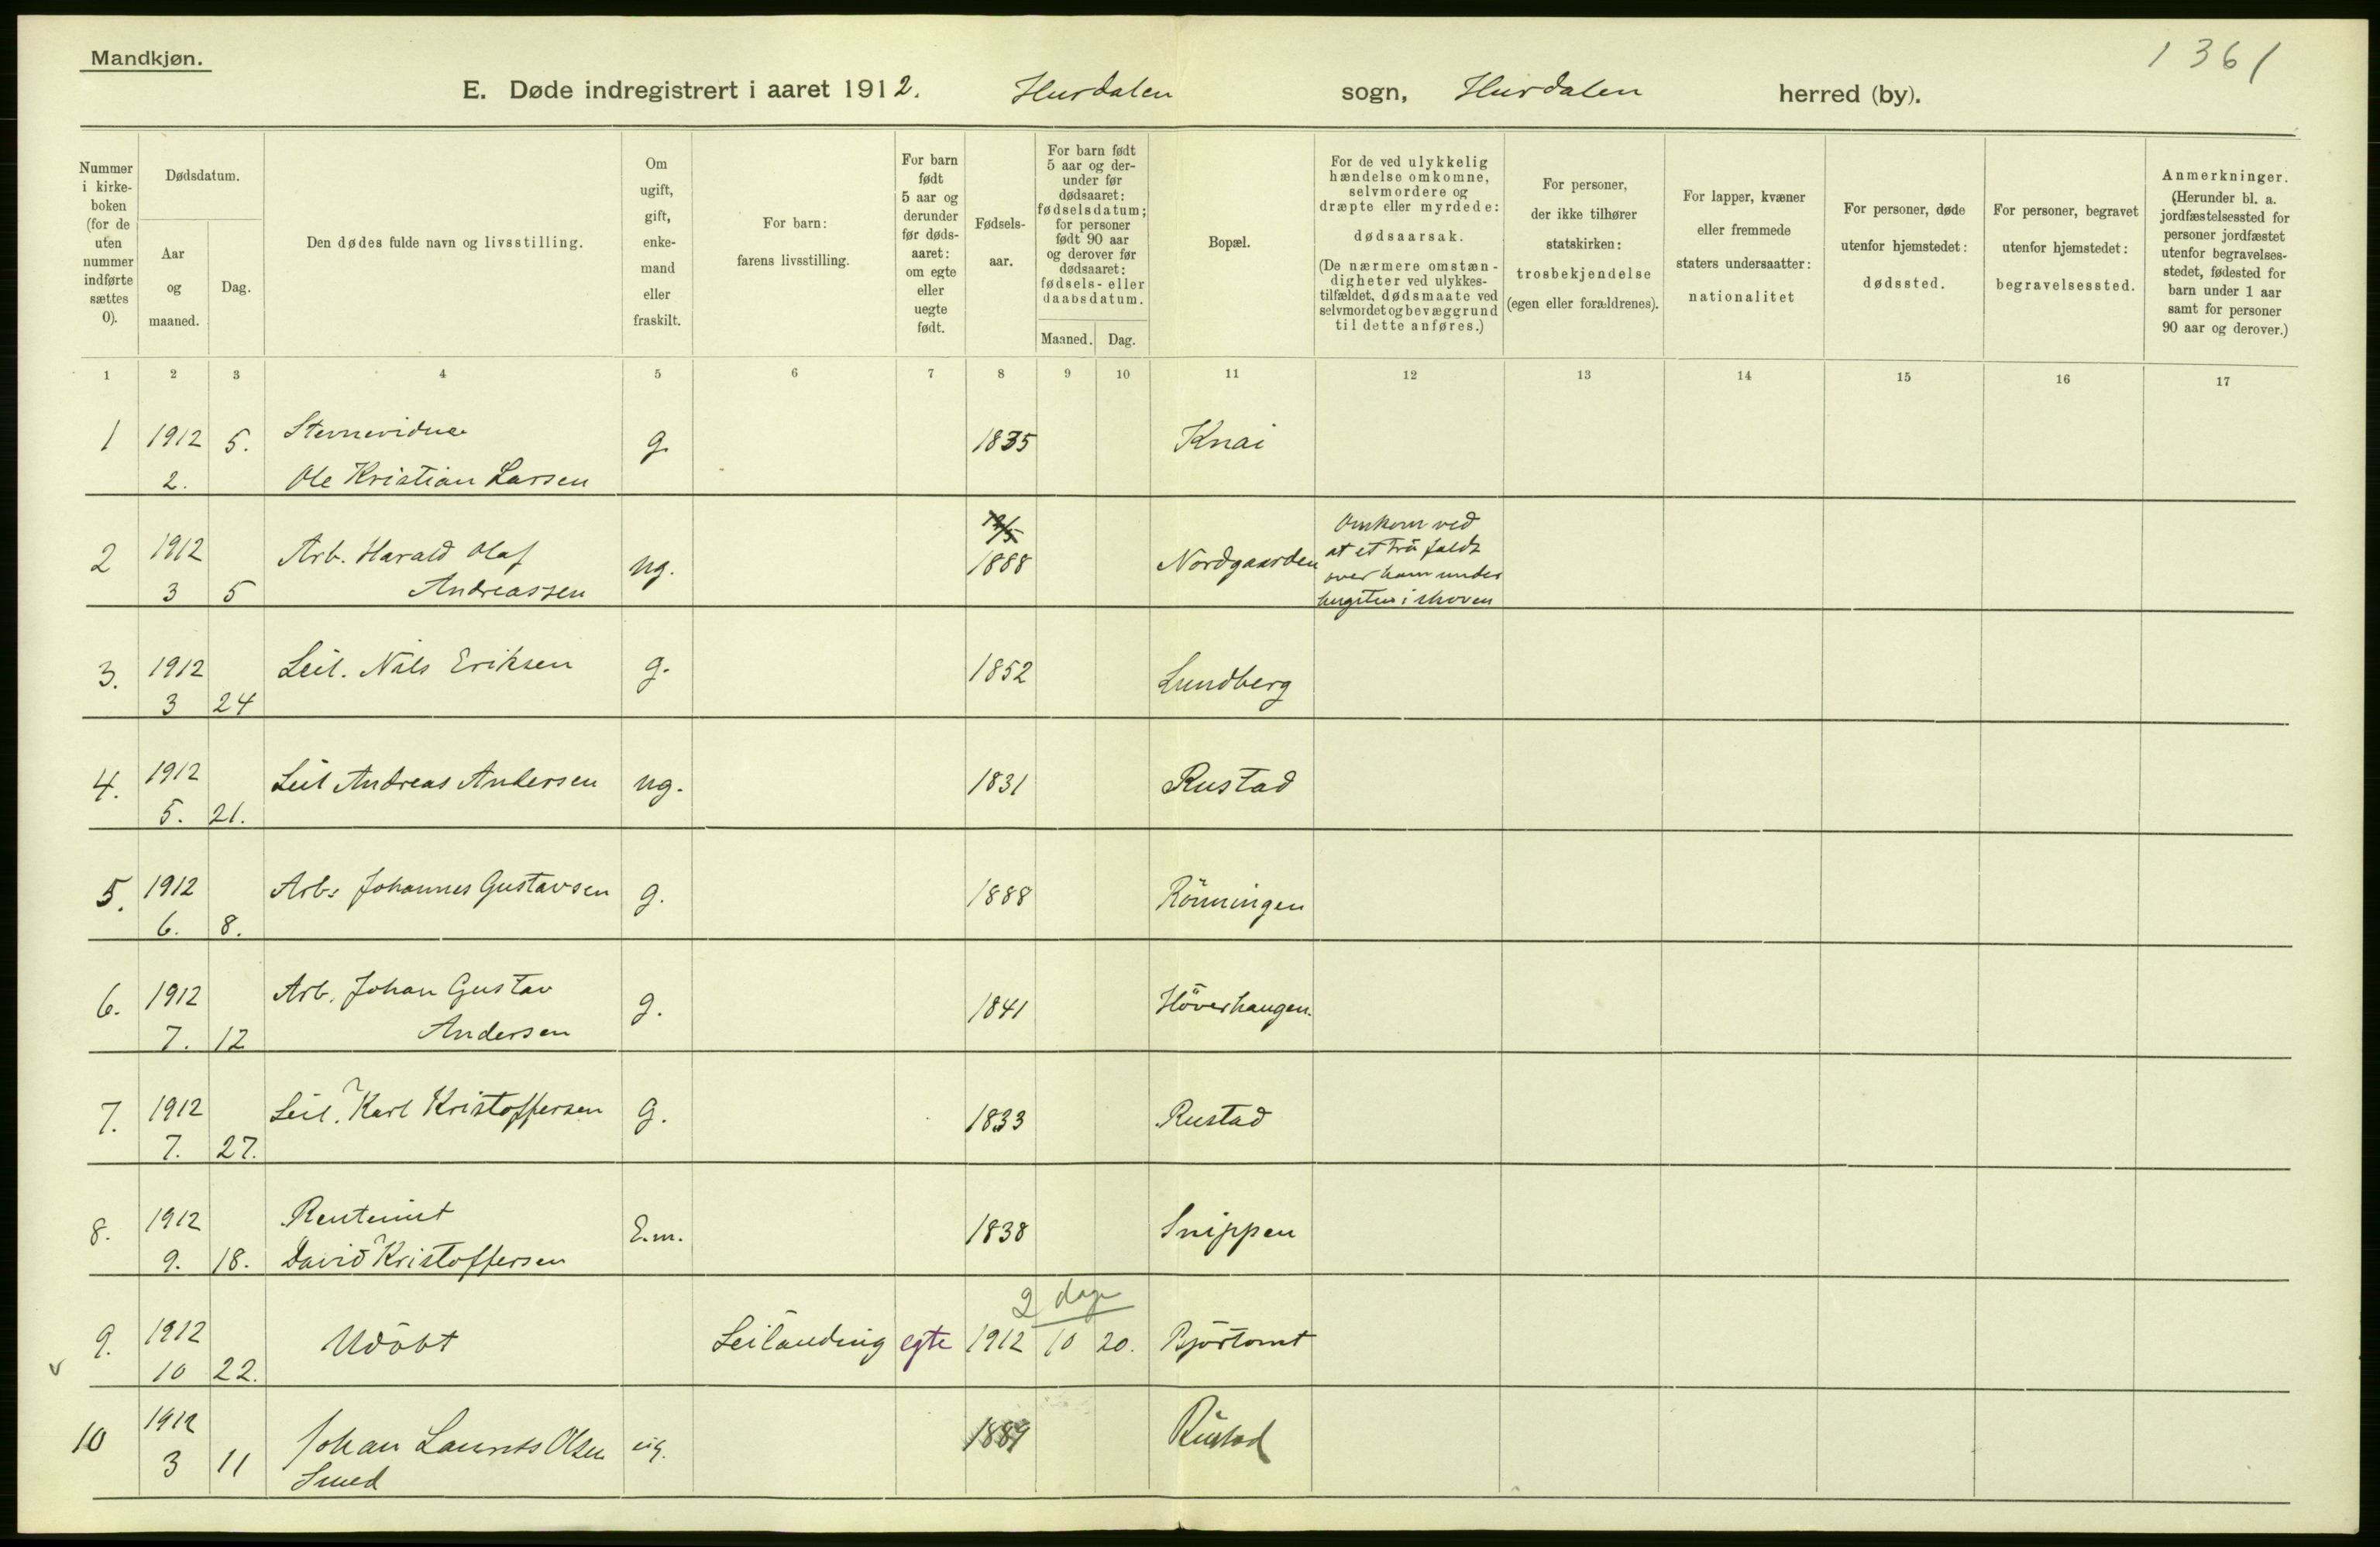 Mandkjøn.
1361
E. Døde indregistrert i aaret 1912. Hurdalen sogn, Hurdalen herred (by).
Nummer i kirke-boken (for de uten nummer indførte sættes 0).
Dødsdatum.
Aar og maaned.
Dag.
Den dødes fulde navn og livsstilling.
Om ugift, gift, enke-mand eller fraskilt.
For barn: farens livsstilling.
For barn født 5 aar og derunder før døds-aaret: om egte eller uegte født.
Fødsels-aar.
For barn født 5 aar og der-under før dødsaaret: fødselsdatum; for personer født 90 aar og derover før dødsaaret: fødsels- eller daabsdatum.
Maaned. Dag.
Bopæl.
For de ved ulykkelig hændelse omkomne, selvmordere og dræpte eller myrdede: dødsaarsak. (De nærmere omstæn-digheter ved ulykkes-tilfældet, dødsmaate ved selvmordet og bevæggrund til dette anføres.)
For personer, der ikke tilhører statskirken: trosbekjendelse (egen eller forældrenes).
For lapper, kvæner eller fremmede staters undersaatter: nationalitet
For personer, døde utenfor hjemstedet: dødssted.
For personer, begravet utenfor hjemstedet: begravelsessted.
Anmerkninger. (Herunder bl. a. jordfæstelsessted for personer jordfæstet utenfor begravelses-stedet, fødested for barn under 1 aar samt for personer 90 aar og derover.)
1 2 3 4 5 6 7 8 9 10 11 12 13 14 15 16 17
1 1912 5. g. 1835 Knai
2. Ole Kristian Larsen
12/5
Omkom ved
2 1912 Arb. Harald Olaf ug. 1888 Nordgaarden at et træ faldt
over ham under
3 5 Andreassen hugster i skoven
3. 1912 Leil. Nils Eriksen g. 1852 Lundberg
3 24
4. 1912 Leil Andreas Andersen ug. 1831 Rustad
5. 21.
5. 1912 Arb. Johannes Gustavsen g. 1888 Rönningen
6. 8.
6. 1912 Arb. Johan Gustav g. 1841 Höverhaugen.
7. 12 Andersen
7. 1912 Leil. Karl Kristoffersen g. 1833 Rustad
7. 27.
8. 1912 Rentenist E.m. 1838 Snippen
9. 18. David Kristoffersen
2 dage
9. 1912 Udöbt Leilænding egte 1912 10 20. Bjørtomt
v 10 22.
10 1912 Johan Laurits Olsen ug. 1889 Rustad
3 11 Smed